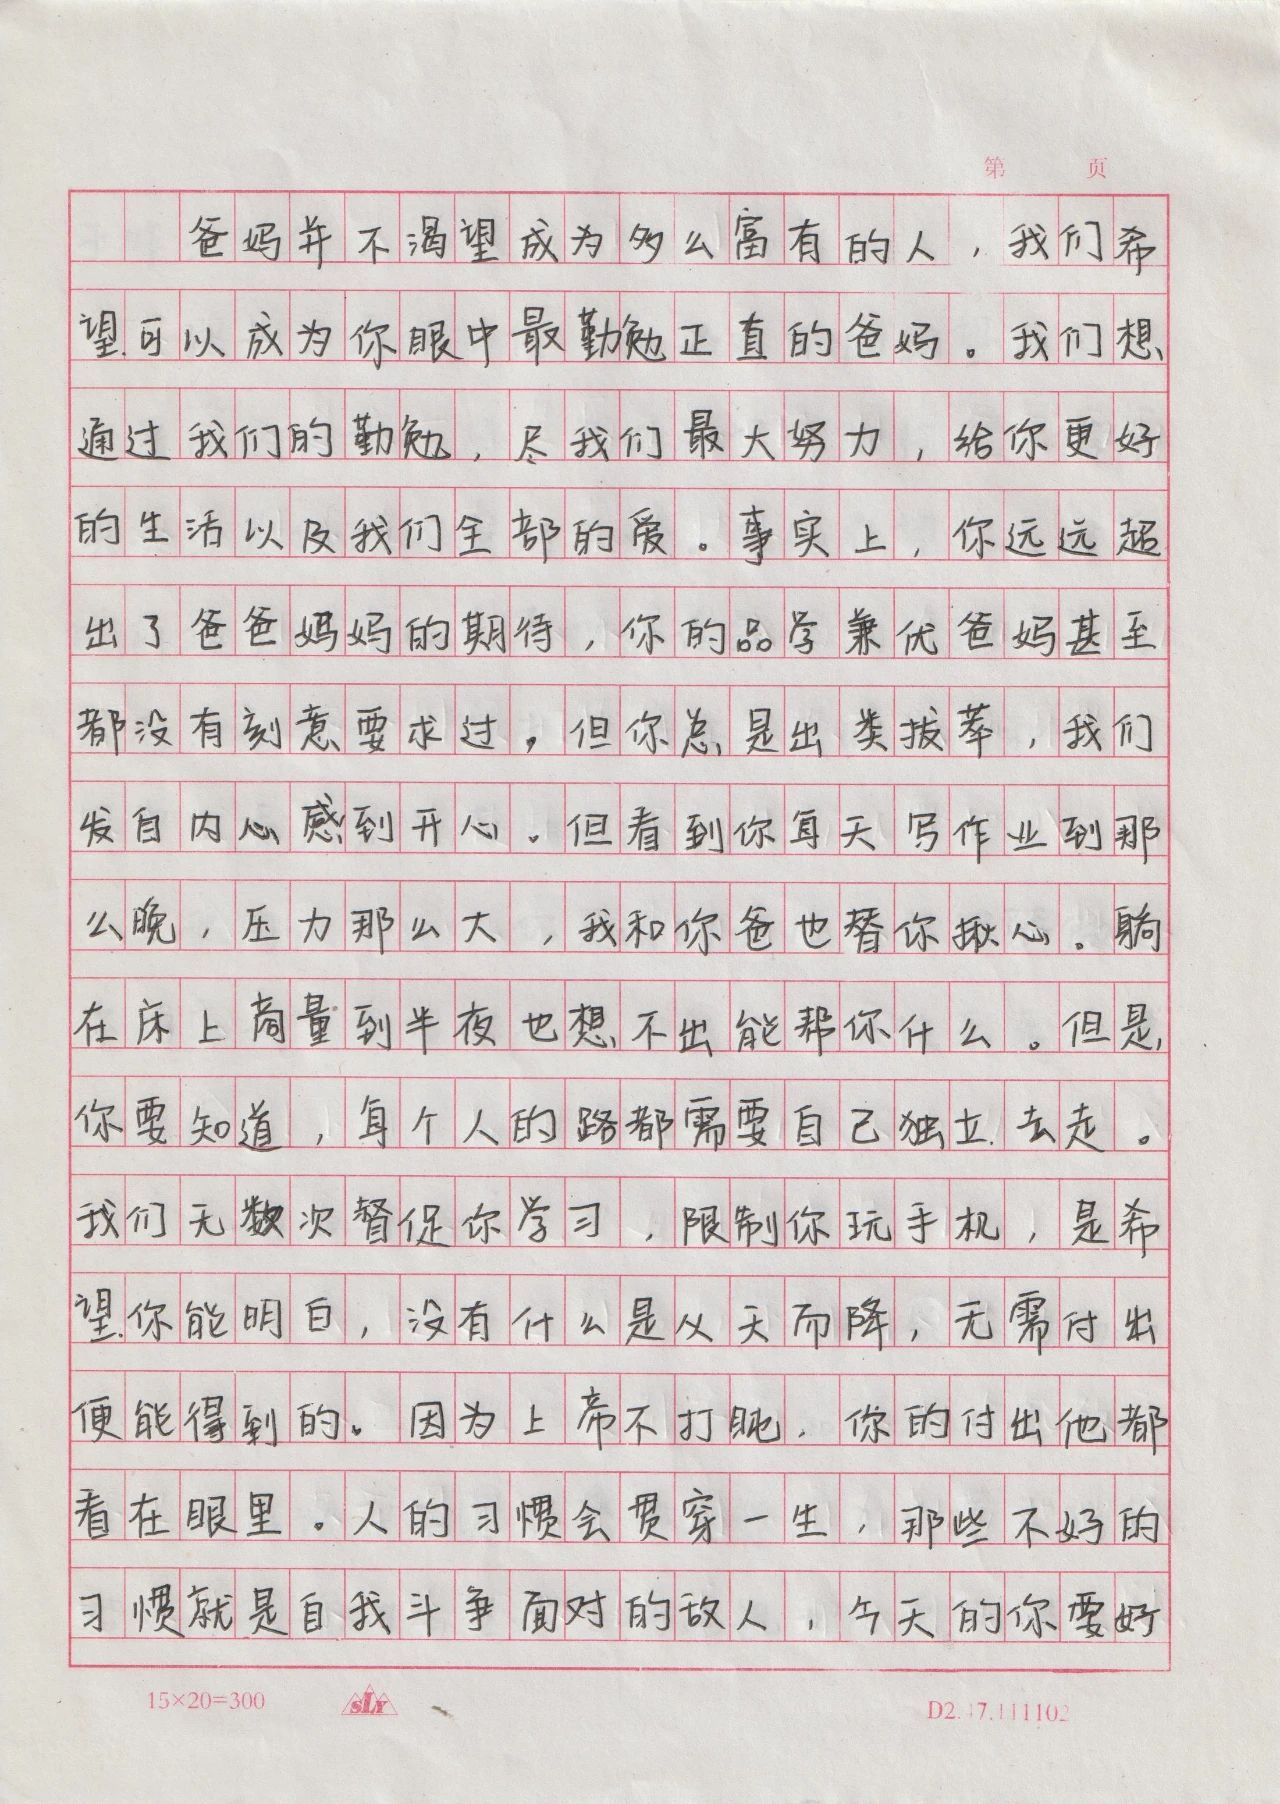 第 页
爸妈并不渴望成为多么富有的人，我们希
望可以成为你眼中最勤勉正直的爸妈。我们想
通过我们的勤勉，尽我们最大努力，给你更好
的生活以及我们全部的爱。事实上，你远远超
出了爸爸妈妈的期待，你的品学兼优爸妈甚至
都没有刻意要求过，但你总是出类拔萃，我们
发自内心感到开心。但看到你每天写作业到那
么晚，压力那么大，我和你爸也替你揪心。躺
在床上商量到半夜也想不出能帮你什么。但是
你要知道，每个人的路都需要自己独立去走。
我们无数次督促你学习，限制你玩手机，是希
望你能明白，没有什么是从天而降，无需付出
便能得到的。因为上帝不打盹，你的付出他都
看在眼里。人的习惯会贯穿一生，那些不好的
习惯就是自我斗争面对的敌人，今天的你要好
15×20=300 SLY D2.47.111102